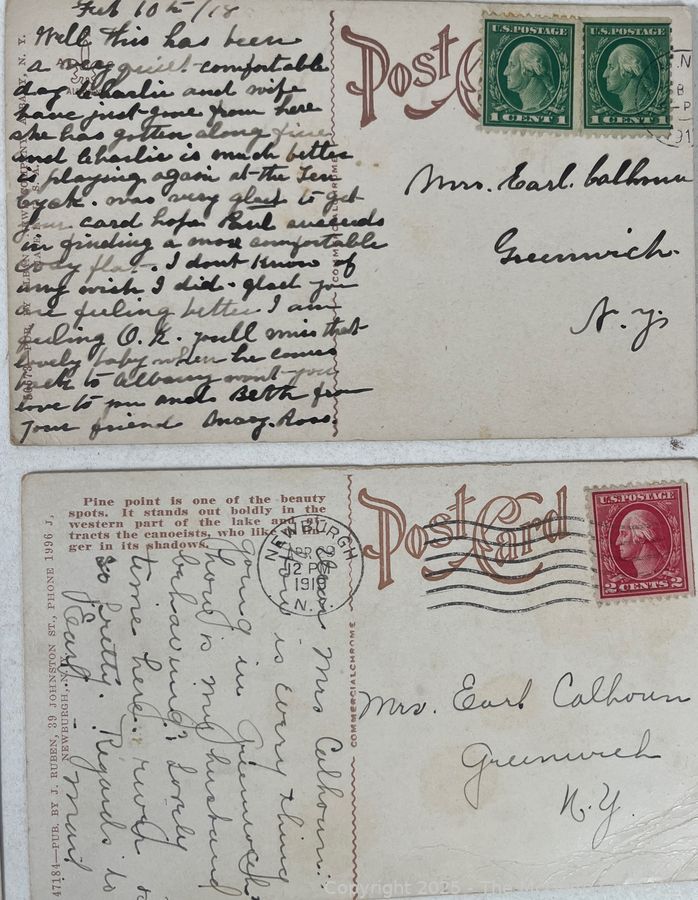 Feb 10th/18
Well this has been
a very quiet comfortable
day Charlie and wife
have just gone from here
she has gotten along fine
and Charlie is much better
is playing again at the Ten
Eyck. was very glad to get
your card hope Paul succeeds
in grinding a more comfortable
flat. I dont know of
any wish I did. glad you
are feeling better I am
feeling O.K. you'll miss that
lovely baby when he comes
back to Albany wont you
love to you and Beth from
your friend Ross.
POST
U.S.POSTAGE
1 CENT 1
U.S.POSTAGE
1 CENT 1
Mrs. Earl Calhoun
Greenwich.
N.Y.
COMMERCIALCHROME
Pine point is one of the beauty
spots. It stands out boldly in the
western part of the lake and at-
tracts the canoeists, who like to lin-
ger in its shadows.
47184—PUB. BY J. RUBEN, 39 JOHNSTON ST., PHONE 1996 J,
NEWBURGH, N.Y.
Dear Mrs Calhoun:
How is every thing
going in Greenwich
How is my husband
behaving? Lovely
time here. river is
so pretty. Regards to
Earl. -
NEWBURGH
APR 29
12 PM
1918
N.Y.
Post Card
U.S.POSTAGE
2 CENTS 2
COMMERCIALCHROME
Mrs. Earl Calhoun
Greenwich
N.Y.
Copyright 2025 - The